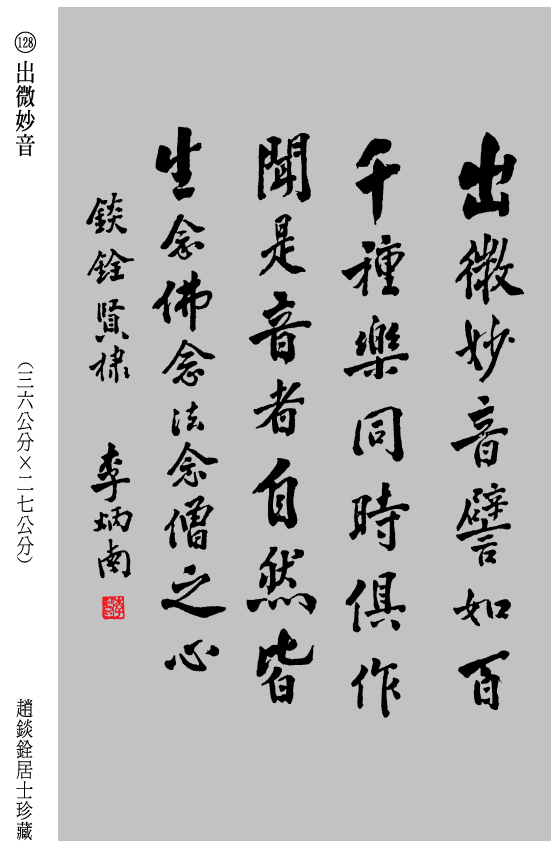 出微妙音譬如百
千種樂同時俱作
聞是音者自然皆
生念佛念法念僧之心
錟銓賢棣 李炳南
128 出微妙音
（三六公分×二七公分）
趙錟銓居士珍藏